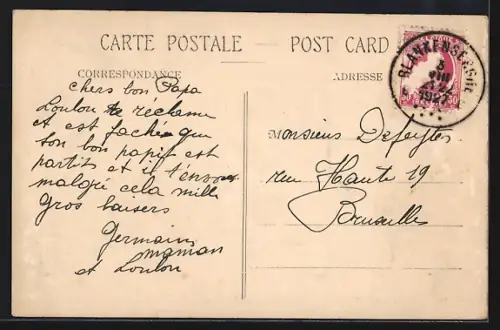 CARTE POSTALE
POST CARD
CORRESPONDANCE
ADRESSE
chers bon Papa
Loulou te réclame
et est faché que
son bon papit est
partit et il t'envoi
malgré cela mille
Gros baisers
Germaine
maman
et Loulou
Monsieur
rue Haute 19
Bruxelles
1927